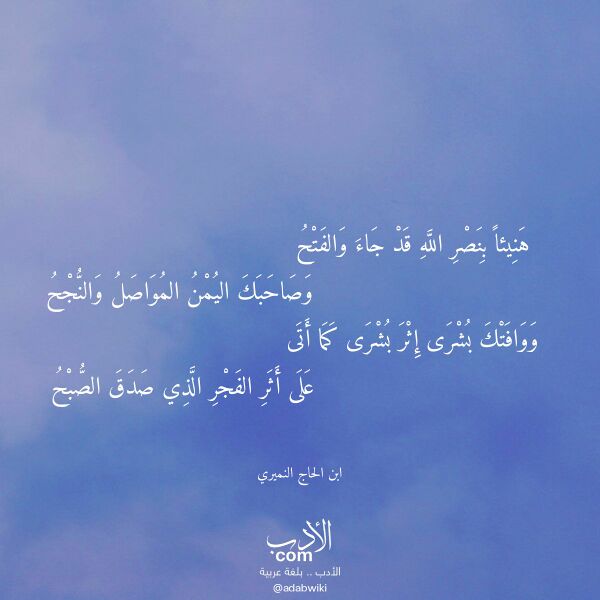 هَنِيئاً بِنَصْرِ اللَّهِ قَدْ جَاءَ وَالفَتْحُ
وَصَاحَبَكَ اليُمْنُ المُوَاصَلُ وَالنُّجْحُ
وَوَافَتْكَ بُشْرَى إِثْرَ بُشْرَى كَمَا أَتَى
عَلَى أَثَرِ الفَجْرِ الَّذِي صَدَقَ الصُّبْحُ
ابن الحاج النميري
الأدب
com
الأدب .. بلغة عربية
@adabwiki